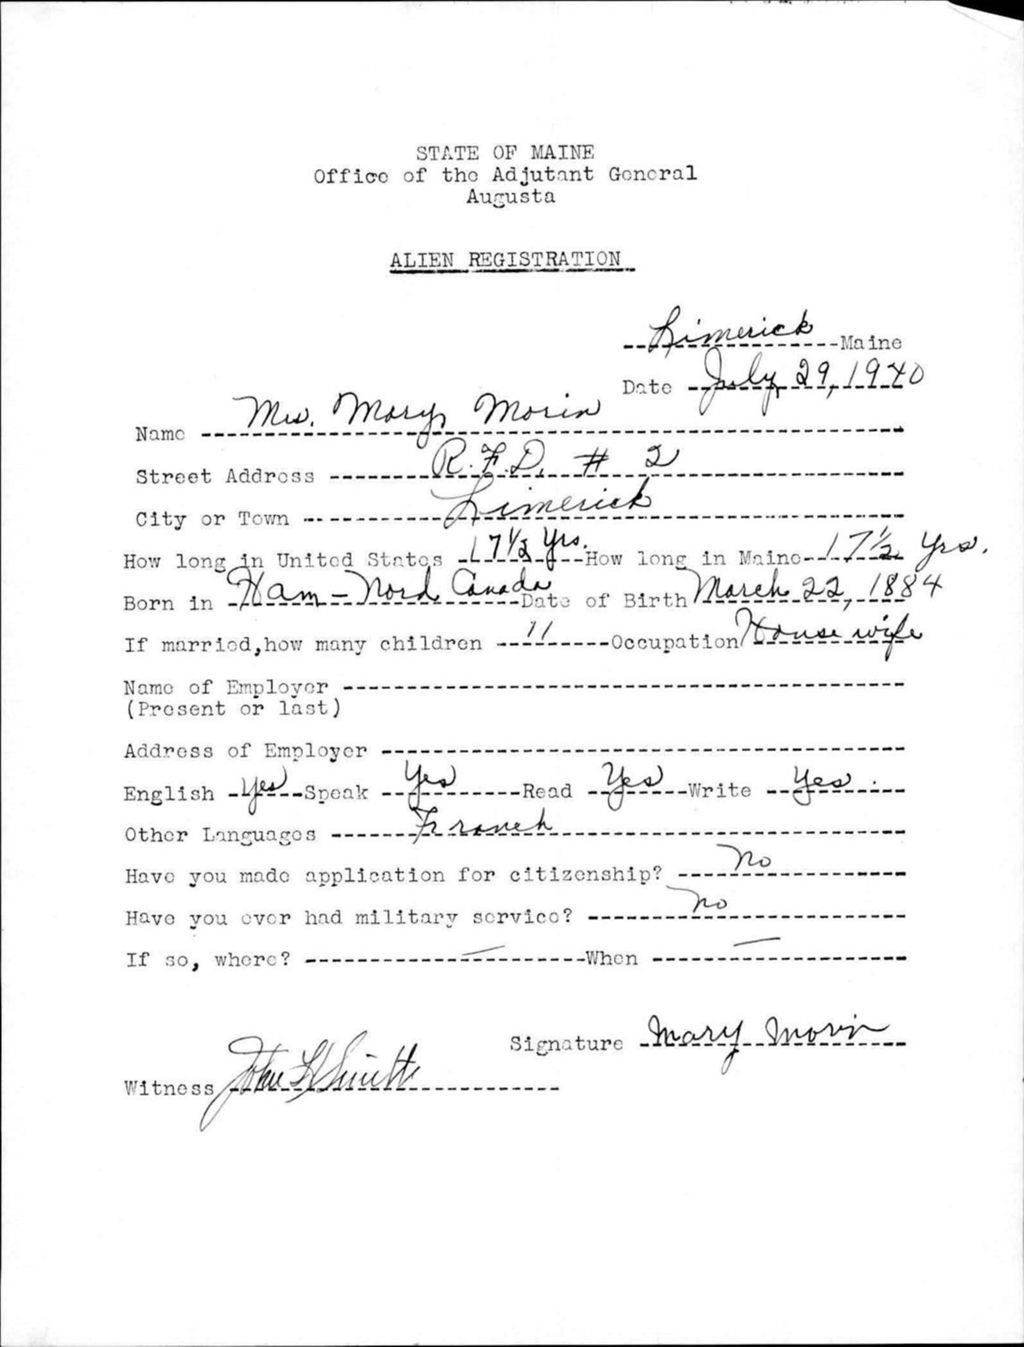 STATE OF MAINE
Office of the Adjutant General
Augusta
ALIEN REGISTRATION
Limerick Maine
Date July 29, 1940
Name Mrs. Mary Morin
Street Address R.F.D. # 2
City or Town Limerick
How long in United States 17 1/2 Yrs. How long in Maine 17 1/2 Yrs.
Born in Ham-Nord Canada Date of Birth March 22, 1884
If married, how many children 11 Occupation House wife
Name of Employer
(Present or last)
Address of Employer
English Yes Speak Yes Read Yes Write Yes.
Other Languages French
Have you made application for citizenship? No
Have you ever had military service? No
If so, where? — When —
Signature Mary Morin
Witness John H Smith